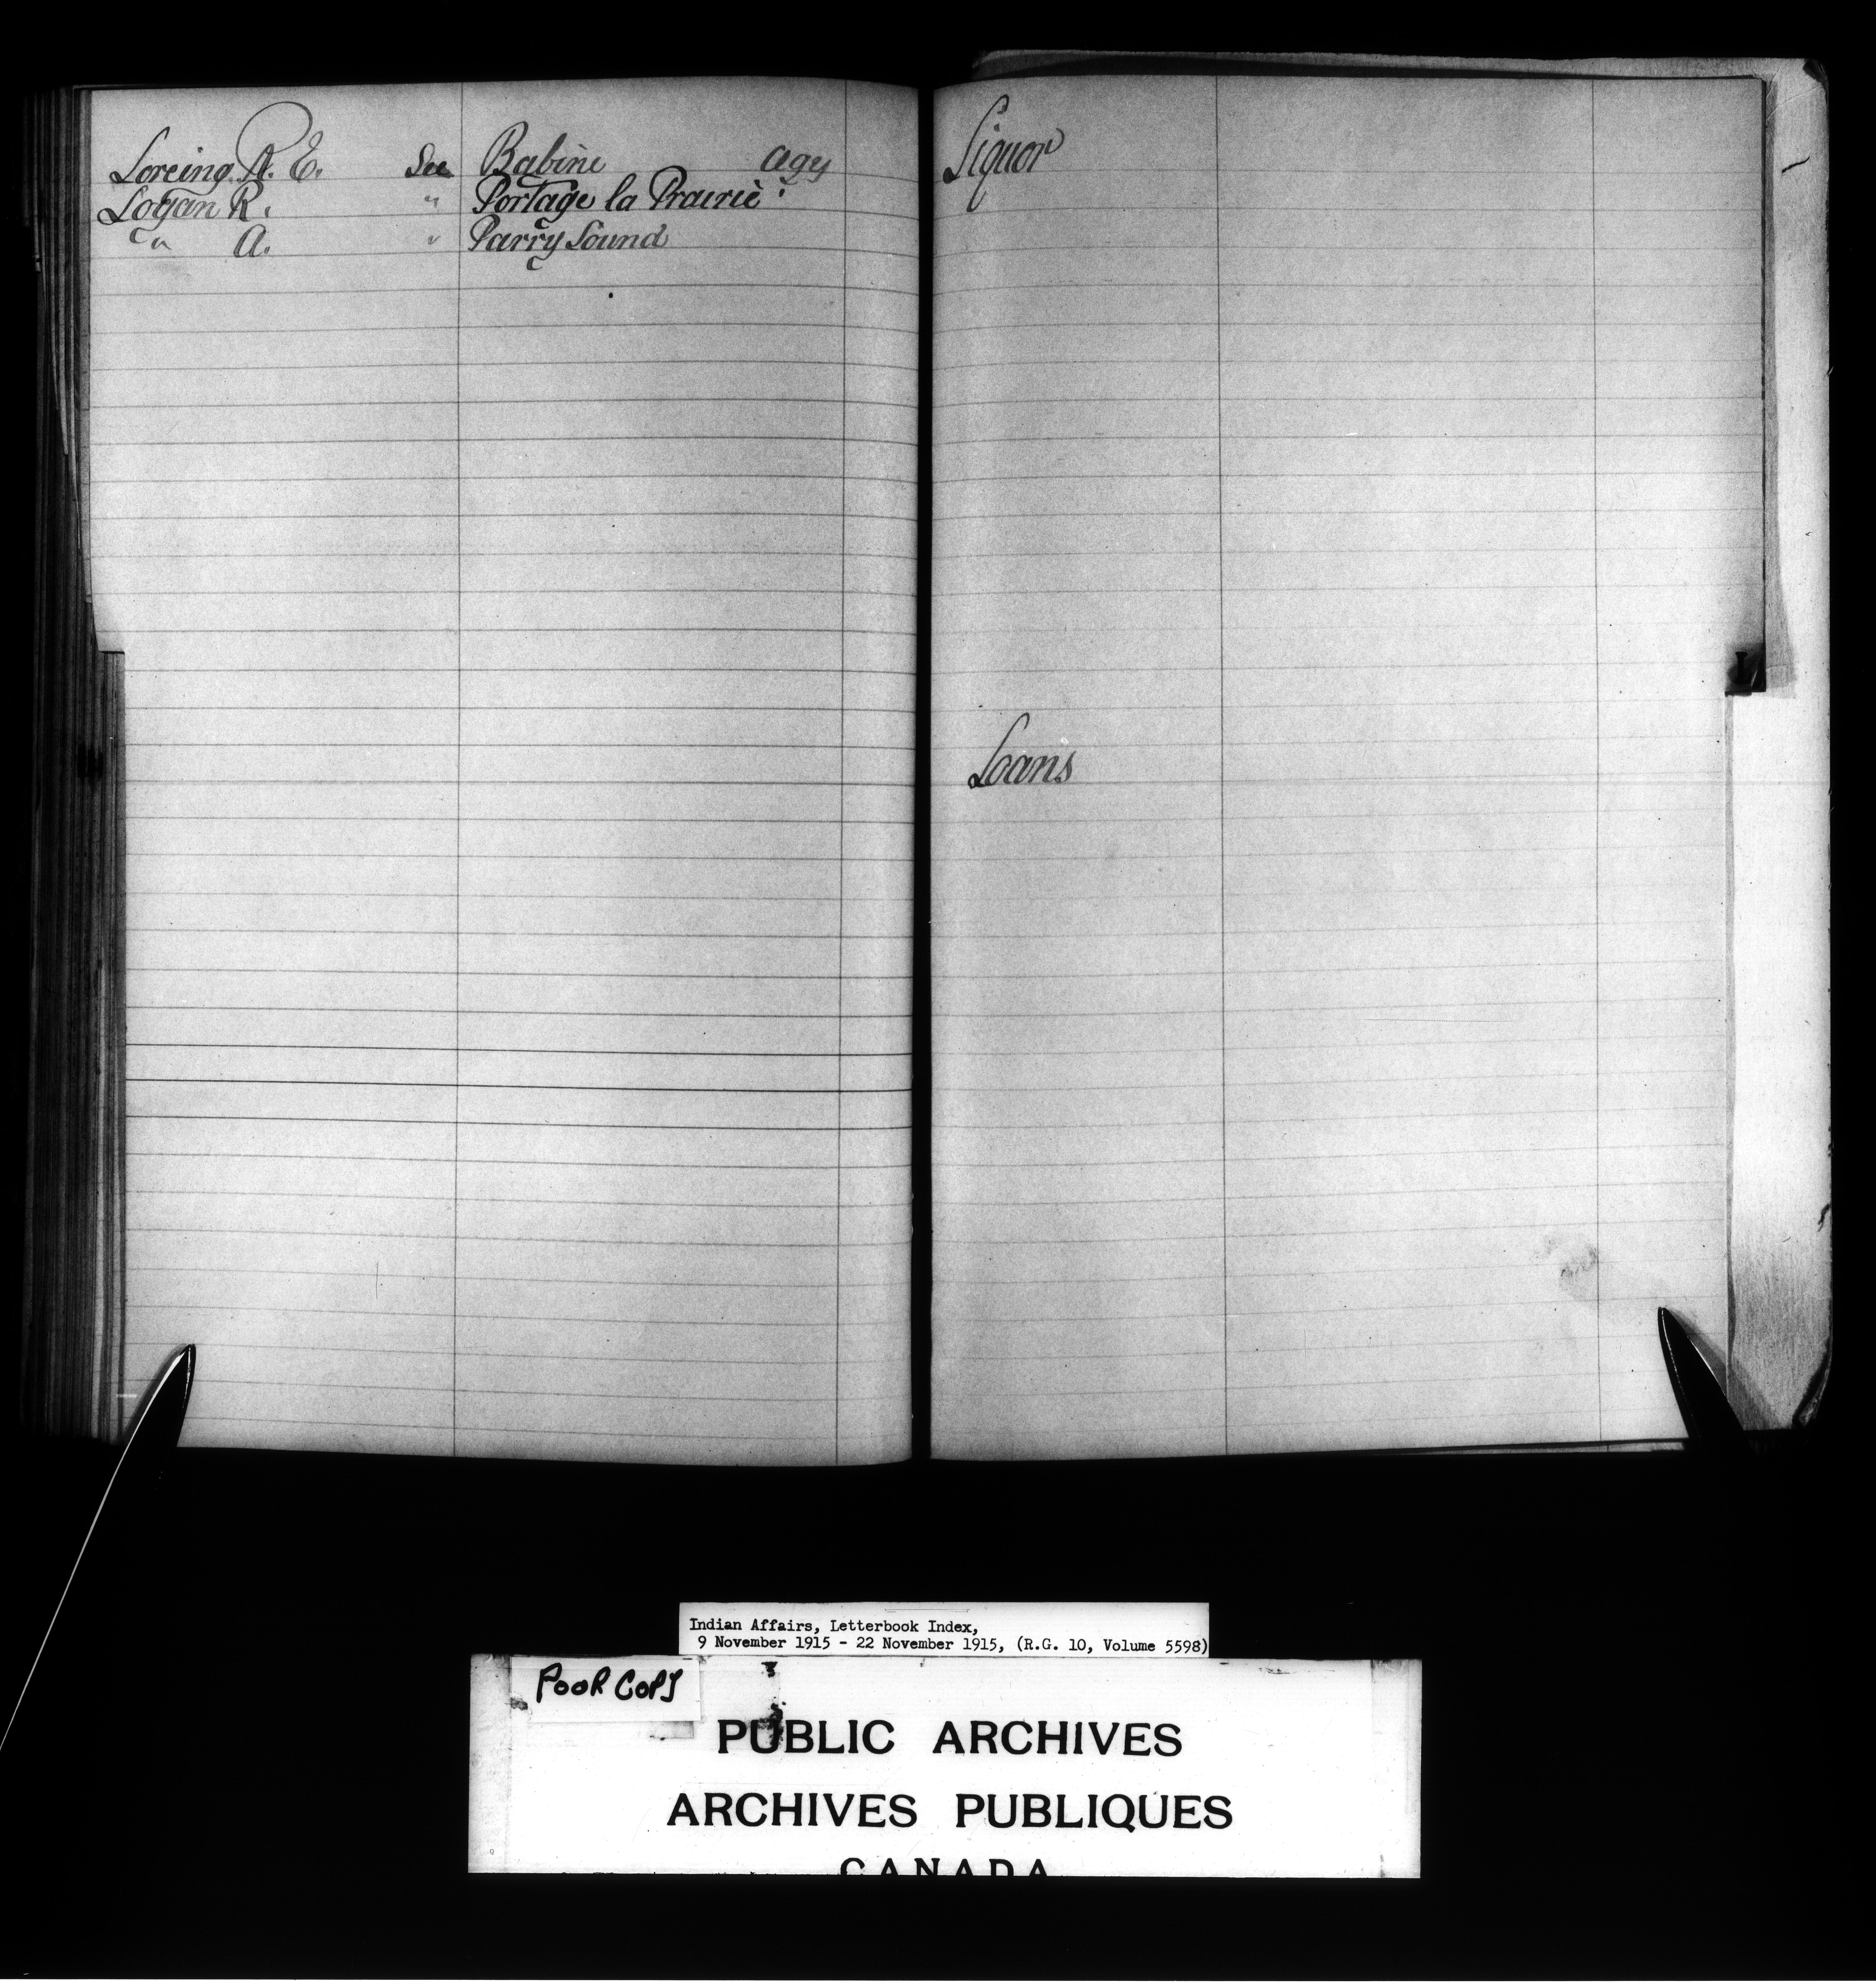 Loreing R. E. See Babine Agy
Logan R. " Portage la Prairie "
" A. " Parry Sound
Liquor
Loans
L
Indian Affairs, Letterbook Index,
9 November 1915 - 22 November 1915, (R.G. 10, Volume 5598)
POOR COPY
PUBLIC ARCHIVES
ARCHIVES PUBLIQUES
CANADA